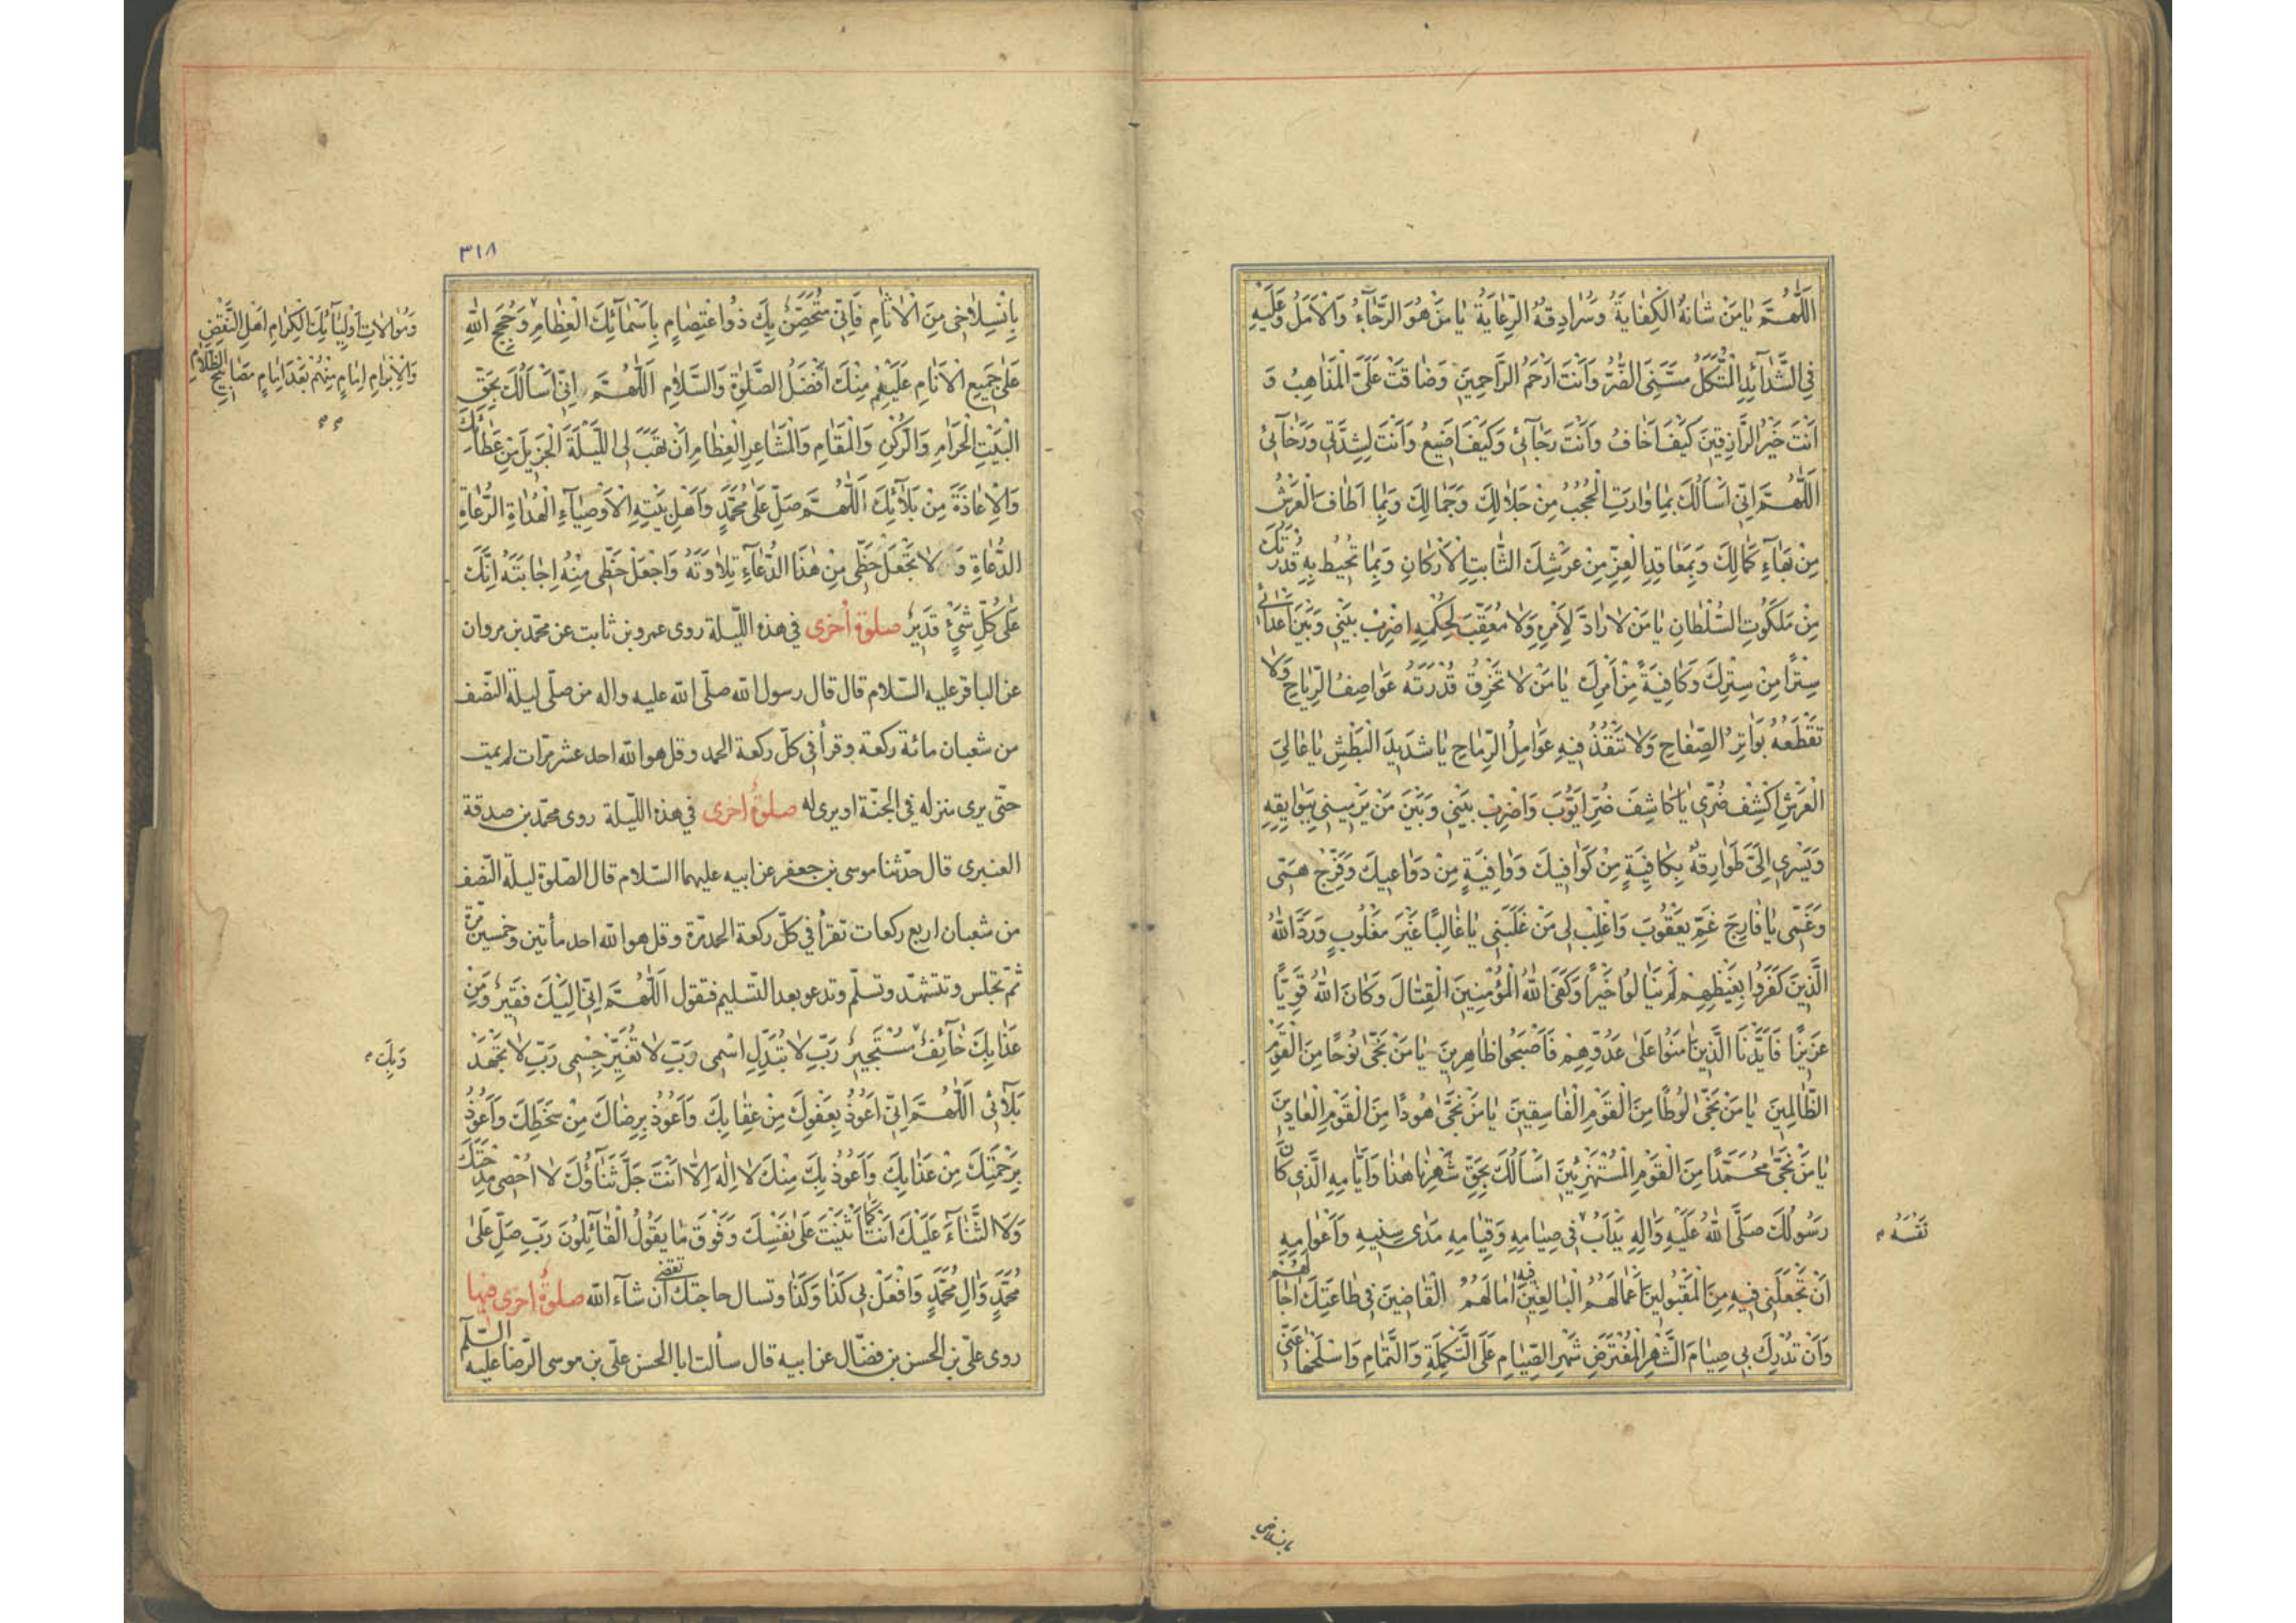 اَللّٰهُمَّ يٰا مَنْ شٰانُهُ الْكِفٰايَةُ وَسُرٰادِقُهُ الرِّعٰايَةُ يٰا مَنْ هُوَ الرَّجٰاۤءُ وَالْاَمَلُ وَعَلَيْهِ
فِى الشَّدٰاۤئِدِ الْمُتَّكَلُ مَسَّنِىَ الضُّرُّ وَاَنْتَ اَرْحَمُ الرّٰاحِمِينَ وَضٰاقَتْ عَلَىَّ الْمَذٰاهِبُ وَ
اَنْتَ خَيْرُ الرّٰازِقِينَ كَيْفَ اَخٰافُ وَاَنْتَ رَجٰاۤئِى وَكَيْفَ اَضِيعُ وَاَنْتَ لِشِدَّتِى وَرَخٰاۤئِى
اَللّٰهُمَّ اِنِّى اَسْاَلُكَ بِمٰا وٰارَتِ الْحُجُبُ مِنْ جَلٰالِكَ وَجَمٰالِكَ وَبِمٰا اَطٰافَ الْعَرْشُ
مِنْ بَهٰاۤءِ كَمٰالِكَ وَبِمَعٰاقِدِ الْعِزِّ مِنْ عَرْشِكَ الثّٰابِتِ الْاَرْكٰانِ وَبِمٰا تُحِيطُ بِهِ قُدْرَتُكَ
مِنْ مَلَكُوتِ السُّلْطٰانِ يٰا مَنْ لٰا رٰادَّ لِاَمْرِهِ وَلٰا مُعَقِّبَ لِحُكْمِهِ اِضْرِبْ بَيْنِى وَبَيْنَ اَعْدٰاۤئِى
سِتْرًا مِنْ سِتْرِكَ وَكٰافِيَةً مِنْ اَمْرِكَ يٰا مَنْ لٰا تَخْرِقُ قُدْرَتَهُ عَوٰاصِفُ الرِّيٰاحِ وَلٰا
تَقْطَعُهُ بَوٰاتِرُ الصِّفٰاحِ وَلٰا تَنْفُذُ فِيهِ عَوٰامِلُ الرِّمٰاحِ يٰا شَدِيدَ الْبَطْشِ يٰا عٰالِىَ
الْعَرْشِ اكْشِفْ ضُرِّى يٰا كٰاشِفَ ضُرِّ اَيُّوبَ وَاضْرِبْ بَيْنِى وَبَيْنَ مَنْ يَرْمِينِى بِبَوٰايِقِهِ
وَيَسْرِى اِلَىَّ طَوٰارِقُهُ بِكٰافِيَةٍ مِنْ كَوٰافِيكَ وَوٰاقِيَةٍ مِنْ دَوٰاعِيكَ وَفَرِّجْ هَمِّى
وَغَمِّى يٰا فٰارِجَ غَمِّ يَعْقُوبَ وَاغْلِبْ لِى مَنْ غَلَبَنِى يٰا غٰالِبًا غَيْرَ مَغْلُوبٍ وَرَدَّ اللّٰهُ
الَّذِينَ كَفَرُوا بِغَيْظِهِمْ لَمْ يَنٰالُوا خَيْرًا وَكَفَى اللّٰهُ الْمُؤْمِنِينَ الْقِتٰالَ وَكٰانَ اللّٰهُ قَوِيًّا
عَزِيزًا فَاَيَّدْنَا الَّذِينَ اٰمَنُوا عَلٰى عَدُوِّهِمْ فَاَصْبَحُوا ظٰاهِرِينَ يٰا مَنْ نَجّٰى نُوحًا مِنَ الْقَوْمِ
الظّٰالِمِينَ يٰا مَنْ نَجّٰى لُوطًا مِنَ الْقَوْمِ الْفٰاسِقِينَ يٰا مَنْ نَجّٰى هُودًا مِنَ الْقَوْمِ الْعٰادِينَ
يٰا مَنْ نَجّٰى مُحَمَّدًا مِنَ الْقَوْمِ الْمُسْتَهْزِئِينَ اَسْاَلُكَ بِحَقِّ شَهْرِنٰا هٰذٰا وَاَيّٰامِهِ الَّذِى كٰانَ
رَسُولُكَ صَلَّى اللّٰهُ عَلَيْهِ وَاٰلِهِ يَدْاَبُ فِى صِيٰامِهِ وَقِيٰامِهِ مَدٰى سِنِيهِ وَاَعْوٰامِهِ
نَفْسَهُ
اَنْ تَجْعَلَنِى فِيهِ مِنَ الْمَقْبُولِينَ اَعْمٰالُهُمُ الْبٰالِغِينَ فِيهِ اٰمٰالَهُمْ الْقٰاضِينَ فِى طٰاعَتِكَ اٰجٰالَهُمْ
وَاَنْ تُدْرِكَ بِى صِيٰامَ الشَّهْرِ الْمُفْتَرَضِ شَهْرِ الصِّيٰامِ عَلَى التَّكْمِلَةِ وَالتَّمٰامِ وَاسْلَخْهٰا عَنِّى
بانسلاخى
٣١٨
بِانْسِلٰاخِى مِنَ الْاٰثٰامِ فَاِنِّى مُتَحَصِّنٌ بِكَ ذُو اعْتِصٰامٍ بِاَسْمٰاۤئِكَ الْعِظٰامِ وَحُجَجِ اللّٰهِ
وَمُوٰالٰاتِ اَوْلِيٰاۤئِكَ الْكِرٰامِ اَهْلِ النَّقْضِ
وَالْاِبْرٰامِ اِمٰامٍ مِنْهُمْ بَعْدَ اِمٰامٍ مَصٰابِيحِ الظَّلٰامِ
عَلٰى جَمِيعِ الْاَنٰامِ عَلَيْهِمْ مِنْكَ اَفْضَلُ الصَّلٰوةِ وَالسَّلٰامِ اَللّٰهُمَّ اِنِّى اَسْاَلُكَ بِحَقِّ
الْبَيْتِ الْحَرٰامِ وَالرُّكْنِ وَالْمَقٰامِ وَالْمَشٰاعِرِ الْعِظٰامِ اَنْ تَهَبَ لِى اللَّيْلَةَ الْجَزِيلَ مِنْ عَطٰاۤئِكَ
وَالْاِعٰاذَةَ مِنْ بَلٰاۤئِكَ اَللّٰهُمَّ صَلِّ عَلٰى مُحَمَّدٍ وَاَهْلِ بَيْتِهِ الْاَوْصِيٰاۤءِ الْهُدٰاةِ الرُّعٰاةِ
الدُّعٰاةِ وَ لٰا تَجْعَلْ حَظِّى مِنْ هٰذَا الدُّعٰاۤءِ تِلٰاوَتَهُ وَاجْعَلْ حَظِّى مِنْهُ اِجٰابَتَهُ اِنَّكَ
عَلٰى كُلِّ شَىْءٍ قَدِيرٌ صلوةٌ أخرى في هذه اللّيلة روى عمرو بن ثابت عن محمّد بن مروان
عن الباقر عليه السّلام قال قال رسول الله صلّى الله عليه واله من صلّى ليلة النّصف
من شعبان مائة ركعة وقرأ في كلّ ركعة الحمد وقل هو الله احد عشر مرّات لم يمت
حتّى يرى منزله في الجنّة او يرى له صلوةٌ اخرى في هذه اللّيلة روى محمّد بن صدقة
العنبرى قال حدّثنا موسى بن جعفر عن ابيه عليهما السّلام قال الصّلوة ليلة النّصف
من شعبان اربع ركعات تقرأ في كلّ ركعة الحمد مرّة وقل هو الله احد مأتين وخمسين مرّة
ثمّ تجلس وتتشهّد وتسلّم وتدعو بعد التّسليم فتقول اَللّٰهُمَّ اِنِّى اِلَيْكَ فَقِيرٌ وَمِنْ
عَذٰابِكَ خٰاۤئِفٌ مُسْتَجِيرٌ رَبِّ لٰا تُبَدِّلْ اسْمِى رَبِّ لٰا تُغَيِّرْ جِسْمِى رَبِّ لٰا تَجْهَدْ
وَبِكَ
بَلٰاۤئِى اَللّٰهُمَّ اِنِّى اَعُوذُ بِعَفْوِكَ مِنْ عِقٰابِكَ وَاَعُوذُ بِرِضٰاكَ مِنْ سَخَطِكَ وَاَعُوذُ
بِرَحْمَتِكَ مِنْ عَذٰابِكَ وَاَعُوذُ بِكَ مِنْكَ لٰا اِلٰهَ اِلّٰا اَنْتَ جَلَّ ثَنٰاۤؤُكَ لٰا اُحْصِى مِدْحَتَكَ
وَلَا الثَّنٰاۤءَ عَلَيْكَ اَنْتَ كَمٰا اَثْنَيْتَ عَلٰى نَفْسِكَ وَفَوْقَ مٰا يَقُولُ الْقٰاۤئِلُونَ رَبِّ صَلِّ عَلٰى
مُحَمَّدٍ وَاٰلِ مُحَمَّدٍ وَافْعَلْ بِى كَذٰا وَكَذٰا وتسال حاجتك تقضى ان شاۤء الله صلوةٌ اخرى فيها
روى علىّ بن الحسن بن فضّال عن ابيه قال سألت ابا الحسن علىّ بن موسى الرّضا عليه السّلم